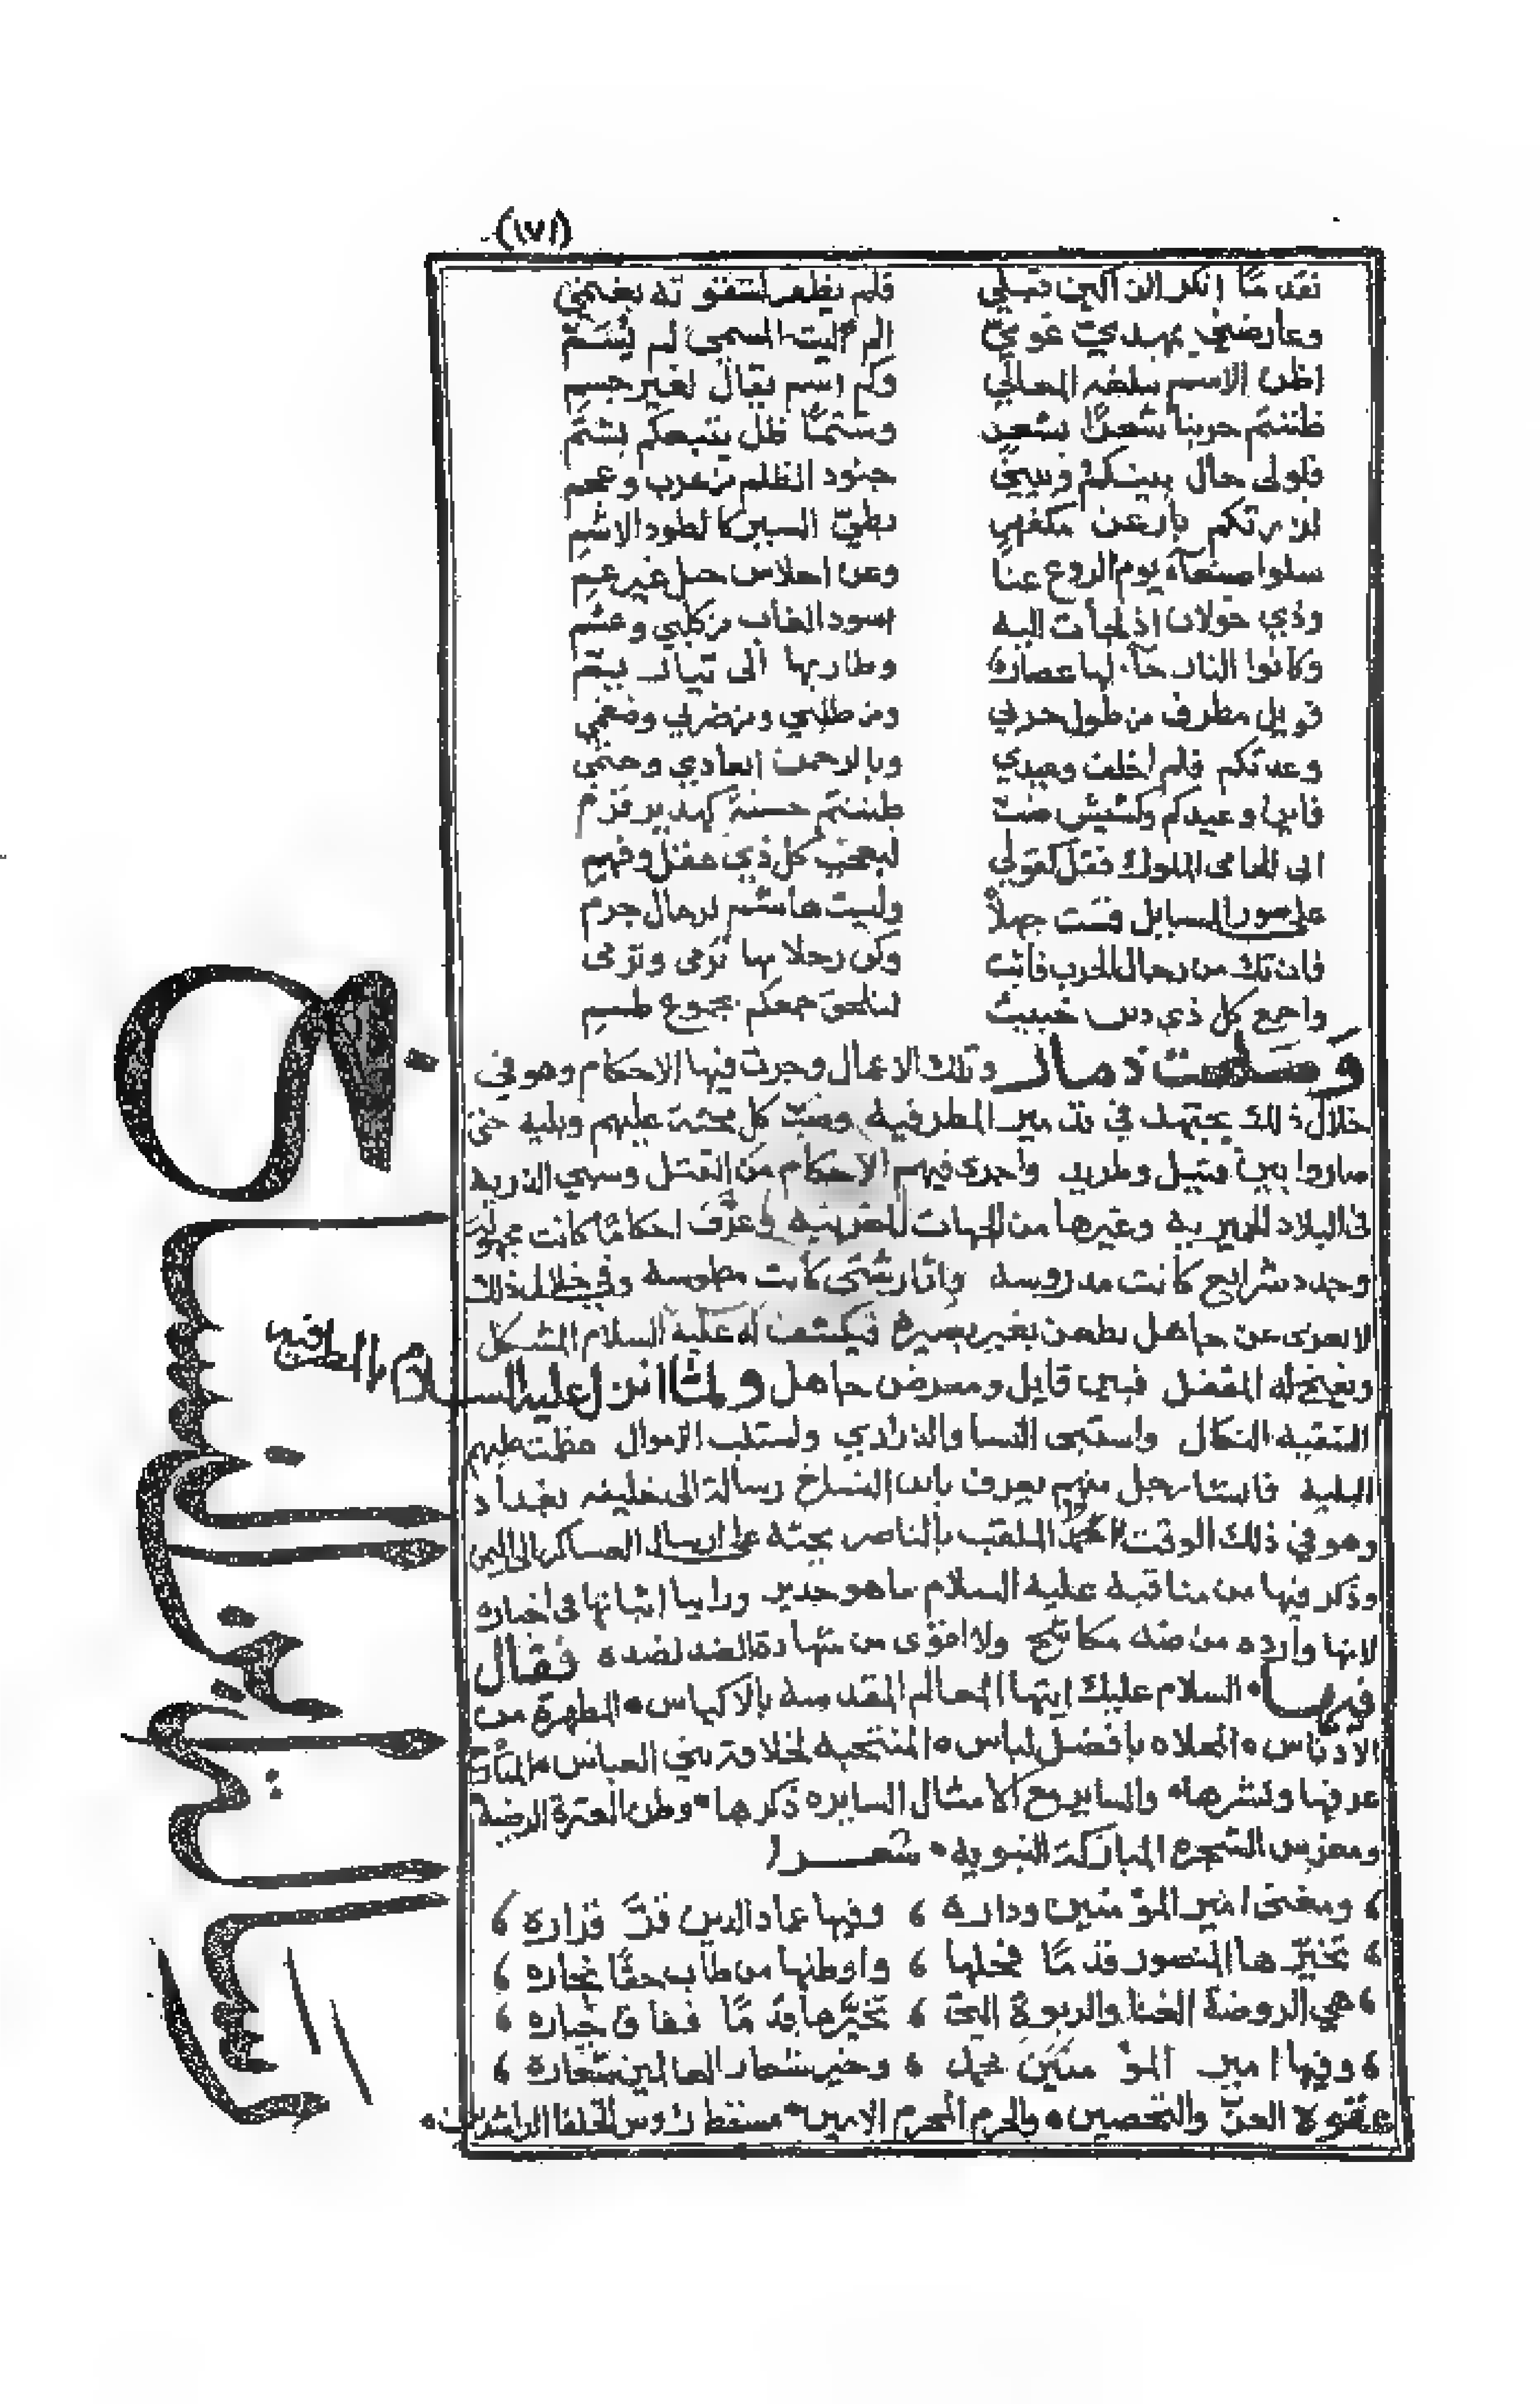 (١٧١)
فقدمًا انكر ان الحين قبلي فلم يظفر لشقوته بغنمي
وعارضني بمهدي غوي الم الميت المسمى لم يسم
اظن الاسم يبلغه المعالي وكم اسم يقال لغير جسم
ظننتم حربنا شعرًا بشعر وشتمًا ظل يتبعكم بشتم
فولى حال بينكم وبيني جنود الظلم من عرب وعجم
لزرتكم بارعن مكفهر بطي السير كالطود الاشم
سلوا صنعاء يوم الروع عنا وعن احلاس خيل غير عم
وذي حولان اذ لجأت اليه اسود الغاب من كلبي وغنم
وكانوا النار جاء لها عصار وطار بها الى تيار يم
فويل مطرف من طول حربي ومن طلبي ومن ضربي وضغمي
وعدتكم فلم اخلف وعيدي وبالرحمن العادي وحتمي
فاين وعيدكم وكشيش ضب ظننتم حسنة كهدير قرم
ابى للحامى الملوك فقل لغولي ليعجب كل ذي عقل وفهم
على صور المسايل قست جهلاً وليست هاشم لرجال جرم
فان تك من رجال الحرب فاثبت وكن رجلا بها تُرمى وترمى
واجمع كل ذي دين خبيث لنلحق جمعكم بجموع طسم
وصلحت ذمار وتلك الاعمال وجرت فيها الاحكام وهو في
خلال ذلك يجتهد في تدمير المطرفيه وصب كل محنة عليهم وبليه حتى
صاروا بين قتيل وطريد واجرى فيهم الاحكام من القتل وسبي الذريه
في البلاد الحميريه وغيرها من الجهات المغربيه وعرَّف احكامًا كانت مجهوله
وجدد شرايع كانت مدروسه واثار شتى كانت مطموسه وفي خلال ذلك
لا يعرى عن جاهل يطعن بغير بصيرة فيكشف له عليه السلام المشكل
ويفتح له المقفل فبين قايل ومعرض جاهل ولما انزل عليه السلام بالمطرفيه
الشقيه النكال واستبى النسا والذراري واستلب الاموال عظمت عليهم
البليه فانشا رجل منهم يعرف بابن النساخ رسالة الى خليفه بغداد
وهو في ذلك الوقت احمد الملقب بالناصر يحثه على ارسال العساكر الى اليمن
وذكر فيها من مناقبه عليه السلام ما هو جدير وراينا اثباتها في اخباره
لانها وارده من ضد مكاشح ولا اقوى من شهادة الضد لضده فقال
فيها • السلام عليك ايتها المعالم المقدسه بالاكياس • المطهرة من
الادناس • المحلاه بافضل لباس • المنتجبه لخلافة بني العباس •
عرفها ونشرها • والساير مع الامثال السايره ذكرها • وطن العترة الرضيه
ومغرس الشجره المباركة النبويه • شعــــر
، ومغنى امير المؤمنين وداره ، وفيها عماد الدين قرَّ قراره ،
، تخيّرها المنصور قدمًا محلها ، واوطنها من طاب حقًا نجاره ،
، هي الروضة الغنا والربوة التي ، تخيَّرها قدمًا ففاق خياره ،
، وفيها امير المؤمنين محل ، وخير شعار العالمين شعاره ،
عقوة العز والتحصين • والحرم المحرم الامين • مسقط رؤس الخلفا الراشدين •